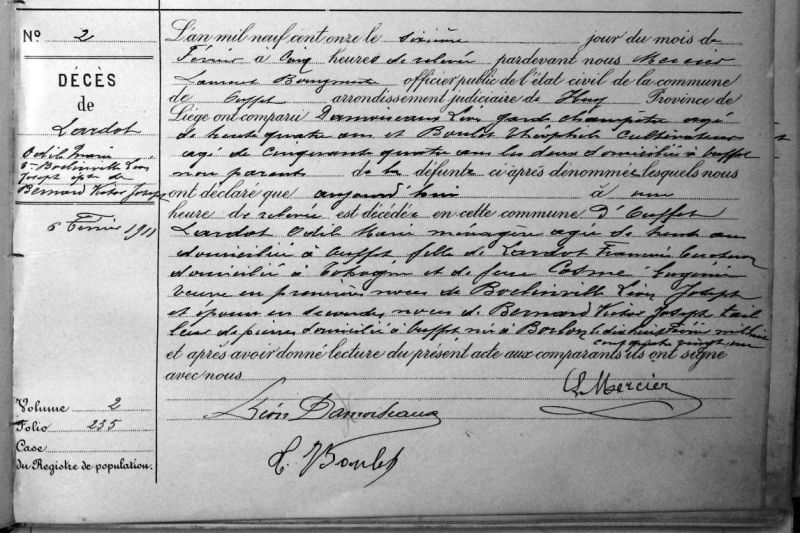 N° 2
DÉCÈS
de
Lardot
Odil Marie
Vve Bochinville Léon
Joseph épse de
Bernard Victor Joseph
6 Février 1911
Volume 2
Folio 235
Case
du Registre de population.
L'an mil neuf cent onze le sixième jour du mois de
Février à cinq heures de relevée pardevant nous Mercier
Laurent officier public de l'état civil de la commune
de Ouffet arrondissement judiciaire de Huy Province de
Liège ont comparu Damoiseaux Léon garde champêtre agé
de trente quatre ans et Boulet Théophile cultivateur
agé de cinquante quatre ans les deux domiciliés à Ouffet
non parents de la défunte ci après dénommée lesquels nous
ont déclaré que aujourd'hui à une
heure de relevée est décédée en cette commune d'Ouffet
Lardot Odil Marie ménagère agée de trente ans
domiciliée à Ouffet fille de Lardot François
domicilié à Tohogne et de feue Cosme Eugénie
veuve en premières noces de Bochinville Léon Joseph
et épouse en secondes noces de Bernard Victor Joseph tail
leur de pierres domicilié à Ouffet né à Borlon le dix huit Février mil huit
cent quatre vingt un
et après avoir donné lecture du présent acte aux comparants ils ont signé
avec nous
L Mercier
Léon Damoiseaux
T. Boulet